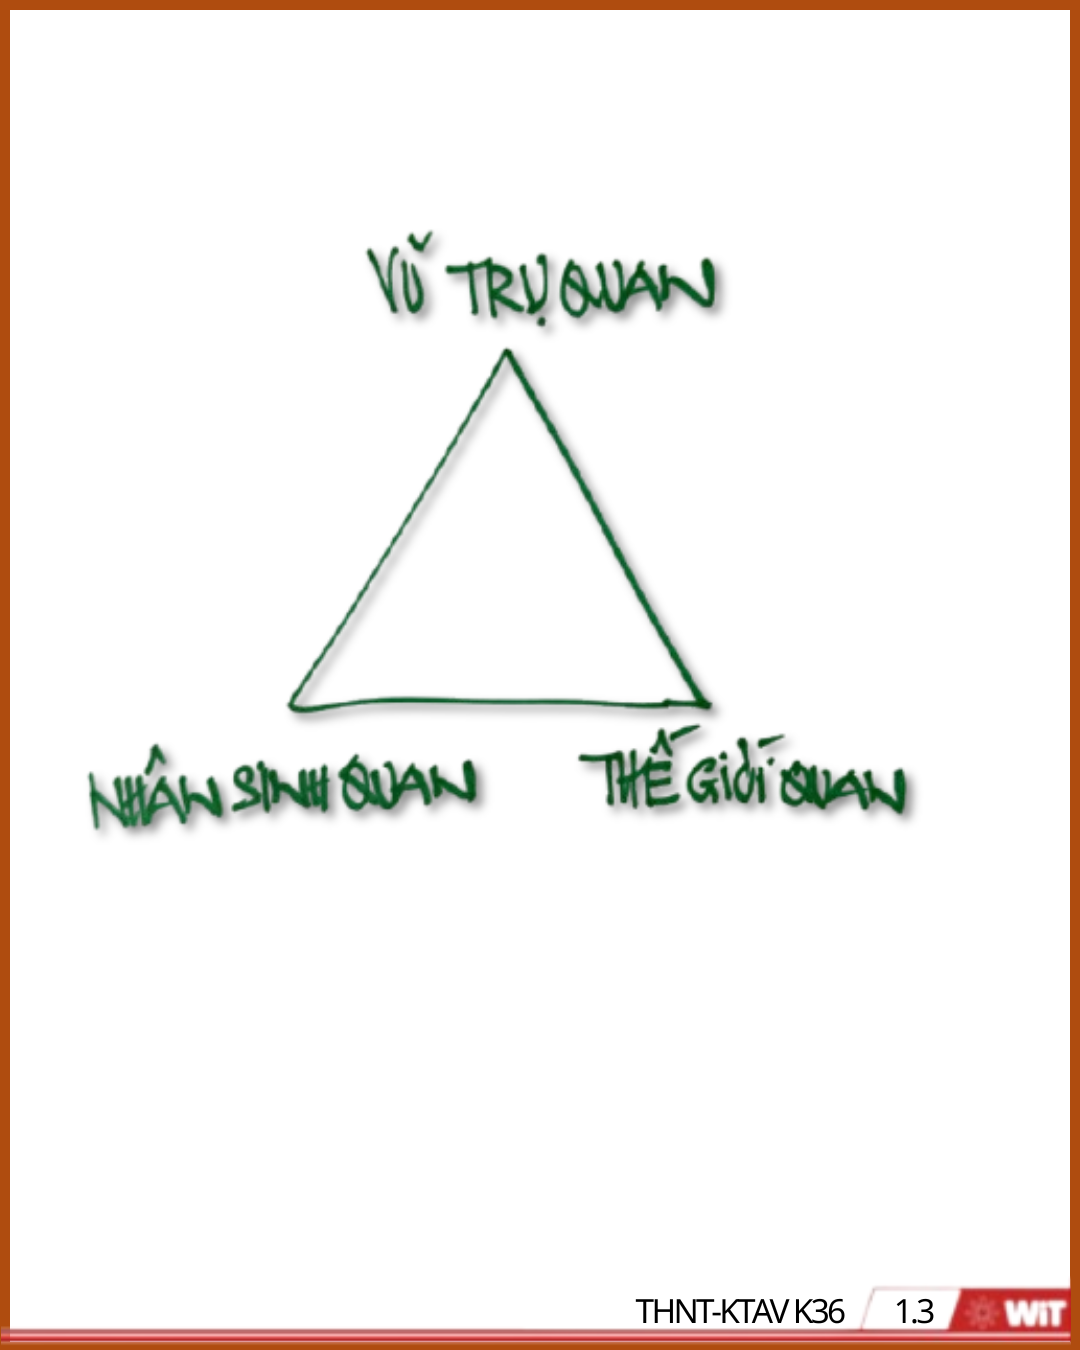 VŨ TRỤ QUAN
NHÂN SINH QUAN
THẾ GIỚI QUAN
THNT-KTAV K36
1.3
WiT